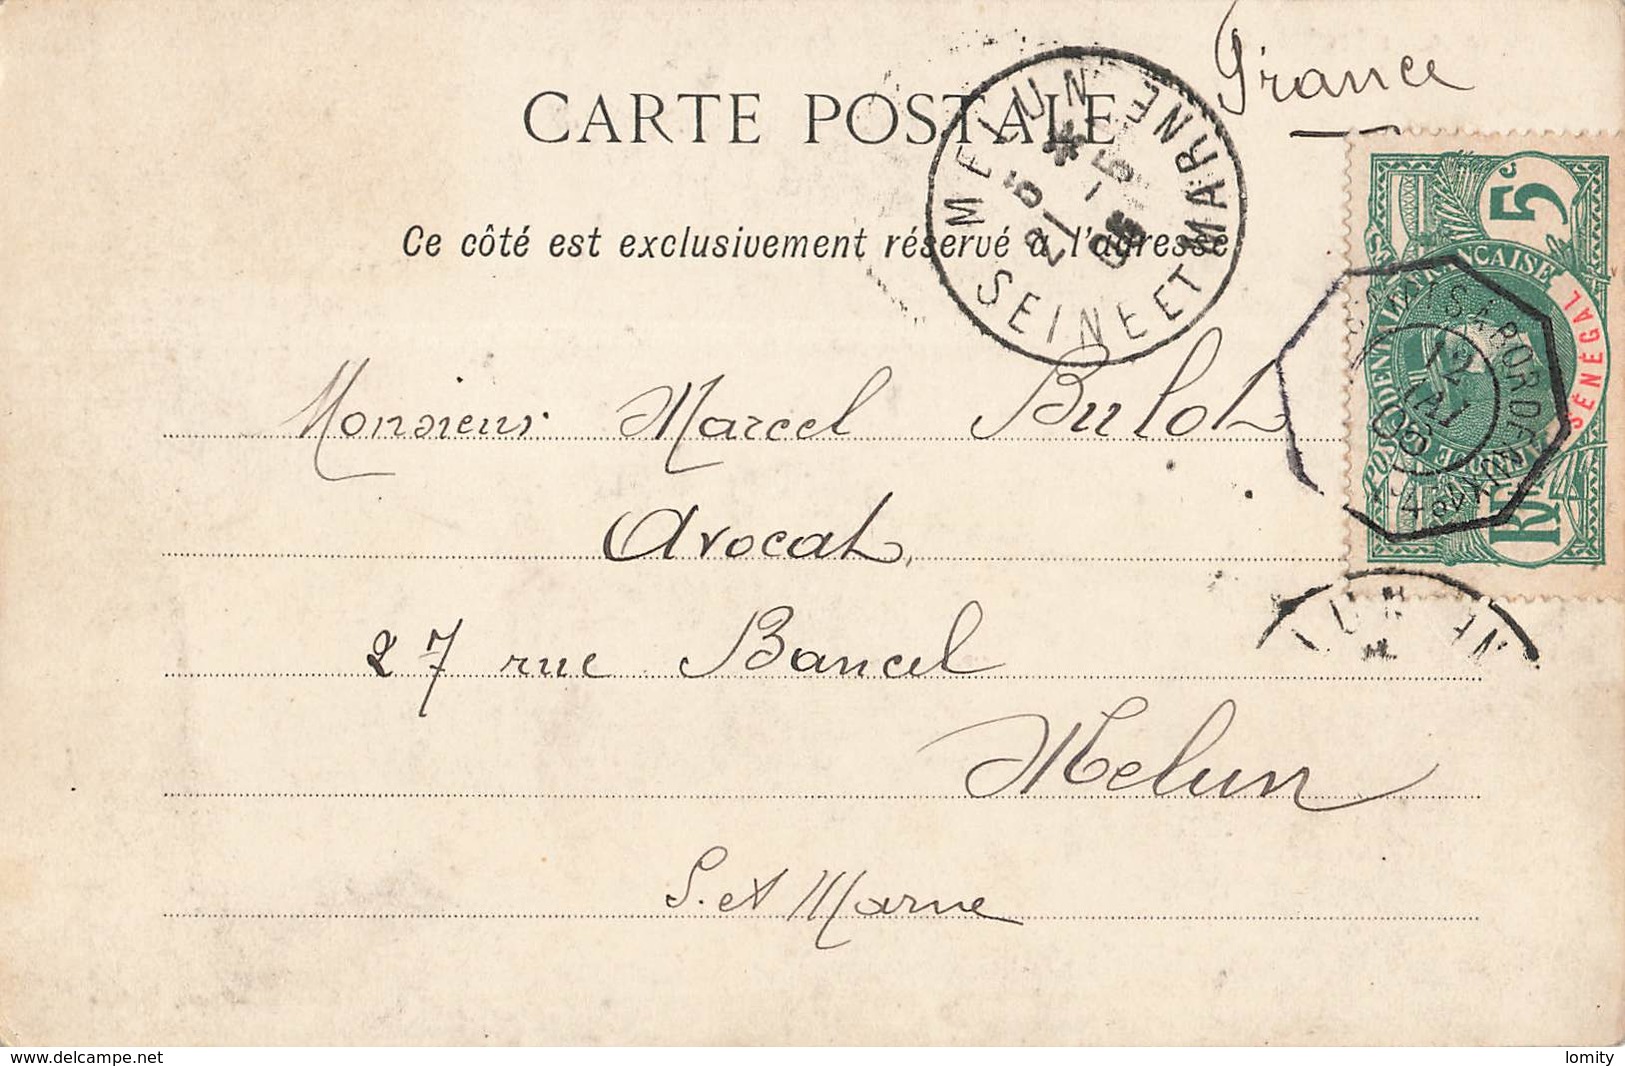 France
CARTE POSTALE
Ce côté est exclusivement réservé à l'adresse
MELUN SEINE ET MARNE
5 *
21 - 5
06
5c
AFRIQUE OCCIDENTALE FRANÇAISE
SÉNÉGAL
POSTES
RF
12 MAI 06
Monsieur Marcel Bulot
Avocat,
27 rue Bancel
Melun
S. et Marne
www.delcampe.net
lomity